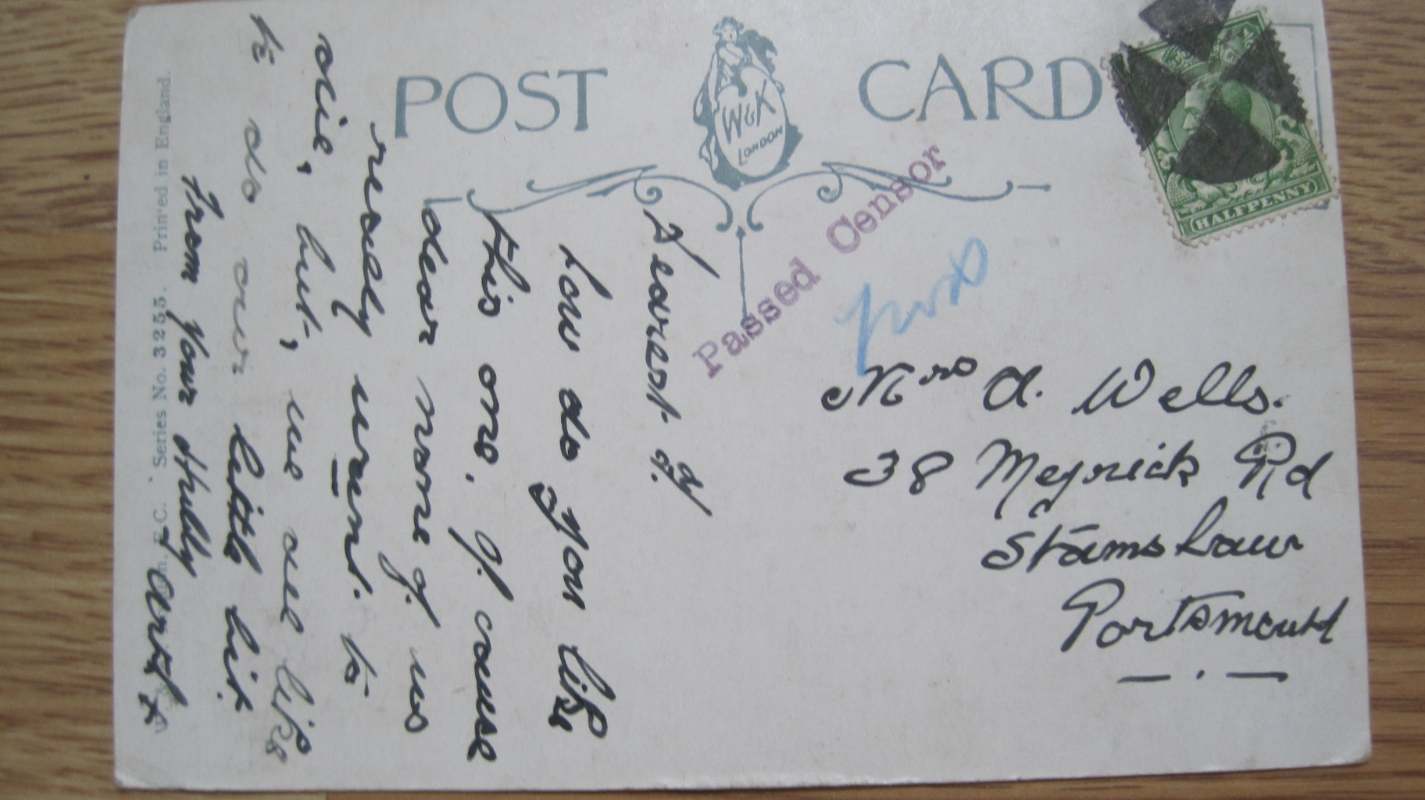 POST CARD
W&K
LONDON
HALFPENNY
Passed Censor
Dearest
how do you like
this one, of cause
dear none of us
really want to
die, but, we all like
to do our little bit
From Your Hubby
Mrs A. Wells.
38 Meyrick Rd
Stamshaw
Portsmouth
E.C. Series No. 3255. Printed in England.